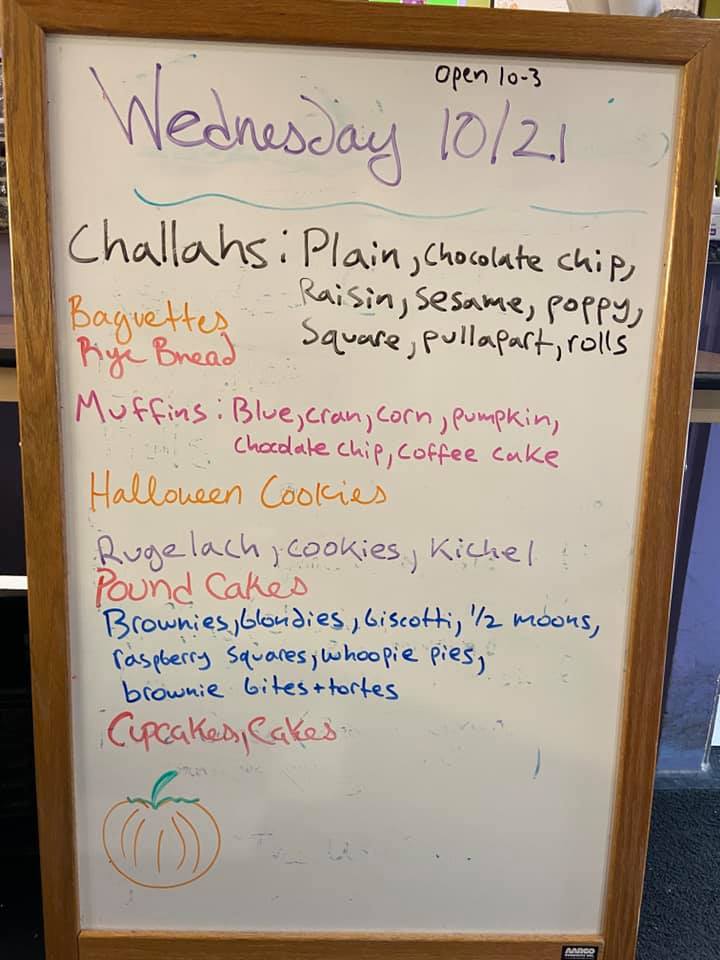 Open 10-3
Wednesday 10/21
Challahs: Plain, Chocolate chip,
Raisin, Sesame, poppy,
Square, pullapart, rolls
Baguettes
Rye Bread
Muffins: Blue, cran, corn, pumpkin,
chocolate chip, coffee cake
Halloween Cookies
Rugelach, cookies, Kichel
Pound Cakes
Brownies, blondies, biscotti, 1/2 moons,
raspberry squares, whoopie pies,
brownie bites + tortes
Cupcakes, Cakes
AARCO